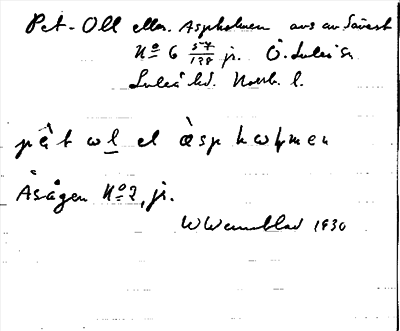 Pet-Oll eller Aspholmen avs av Sävast
No 6 57/128 jr. Ö. Luleå sn
Luleå hd. Norrb. l.
påt ol el àsp hoļmen
Åsågen No 2, jr.
W Wennblad 1930